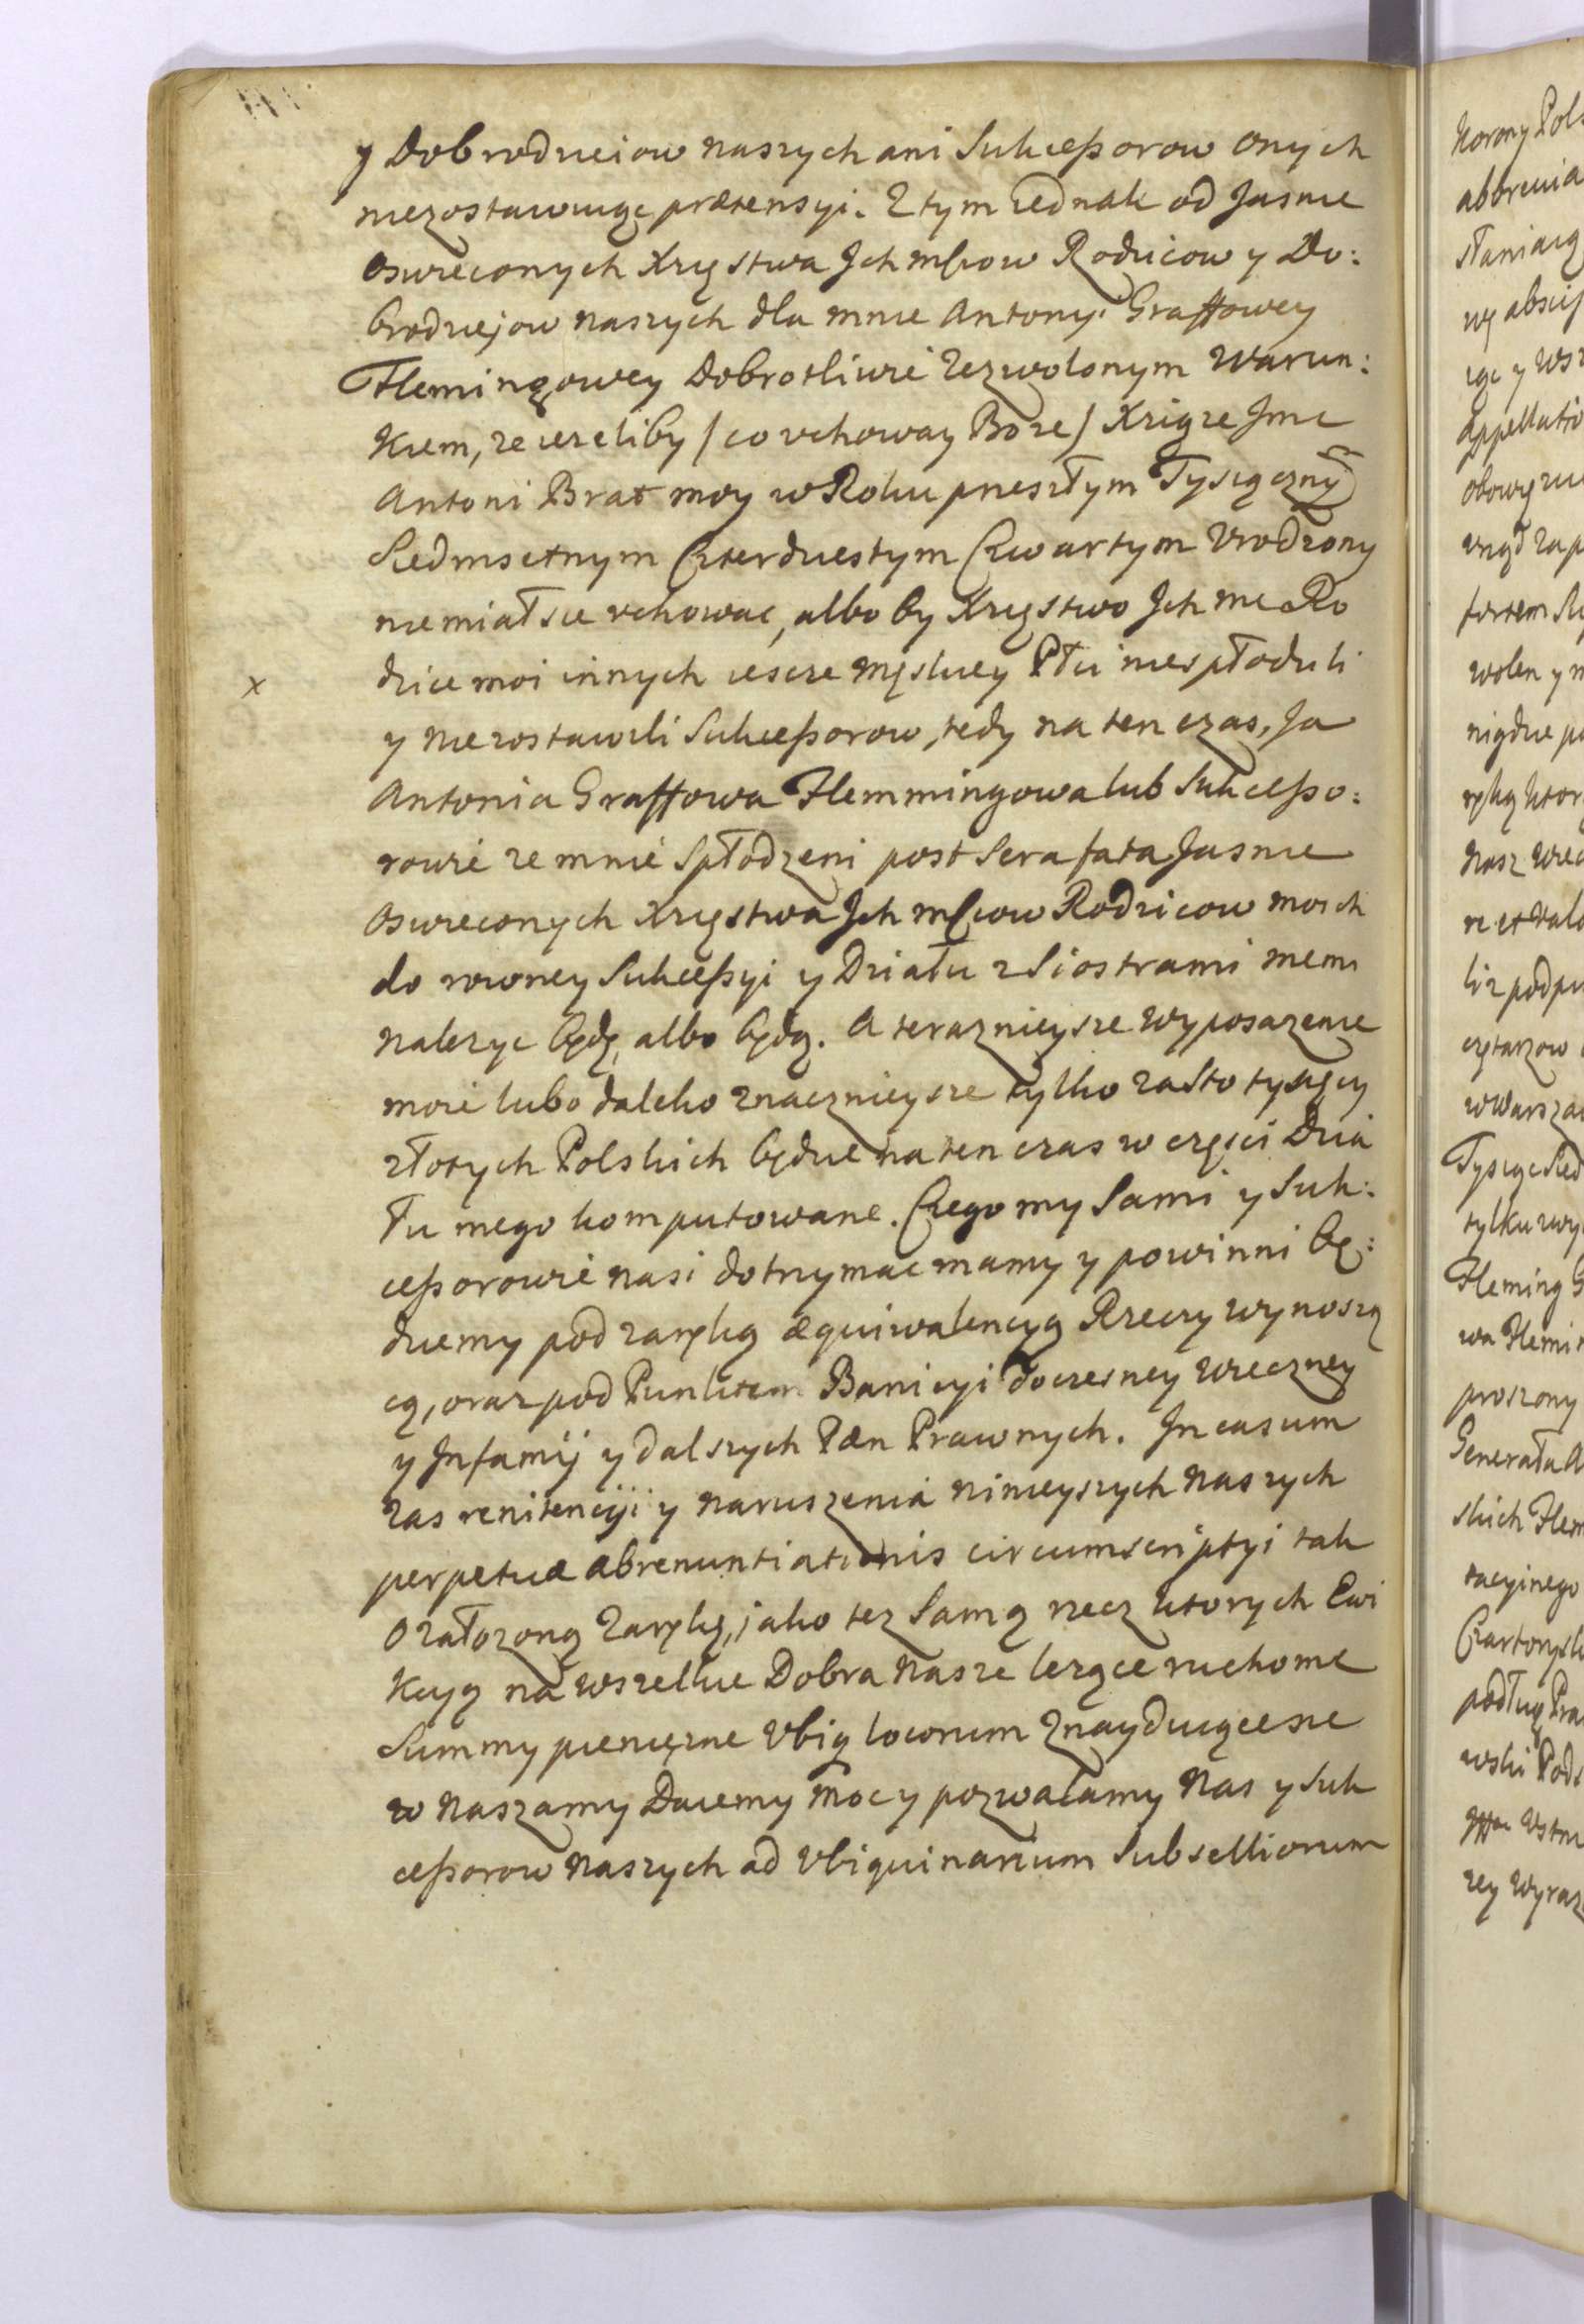 y Dobrodzieiow naszych ani Sukceßorow onych
niezostawuiąc prætensyi. Z tym iednak od Jasnie
Oswieconych Xięstwa Ich mściow Rodzicow y Do:
brodziejow naszych dla mnie Antonyi Graffowey
Flemingowey Dobrotliwie zezwolonym Warun:
kiem, ze iezeliby /co vchoway Boze/ Xiąze Jmc
Antoni Brat moy w Roku przeszłym Tysiącznỹ
Siedmsetnym Czterdziestym Czwartym Vrodzony
niemiał sie vchowac, albo by Xięstwo Ich mc Ro
x dzice moi innych iescze męskiey Płci niespłodzili
y niezostawili Sukceßorow, tedy na ten czas, Ja
Antonia Graffowa Flemmingowa lub Sukceßo:
rowie ze mnie Spłodzeni post sera fata Jasnie
Oswieconych Xięstwa Ich mściow Rodzicow moich
do rowney Sukceßyi y Działu z Siostrami memi
nalezyc będę, albo będą. A teraznieysze wyposazenie
moie lubo daleko znacznieysze tylko za Sto tysięcy
złotych Polskich będzie na ten czas w częsci Dzia
łu mego komputowane. Czego my Sami y Suk:
ceßorowie nasi dotrzymac mamy y powinni bę:
dziemy pod zaręką æquiwalencyą Rzeczy wynoszą
cą, oraz pod Punktem Banicyi doczesney wieczney
y Infamij y dalszych Pæn Prawnych. In casum
zas renitencyi y naruszenia ninieyszych naszych
perpetuæ abrenuntiationis circumscriptyi tak
o załozoną zarękę, jako tez Samą rzecz ktorych Ewi
kcyą na wszelkie Dobra nasze lezące ruchome
Summy pieniężne Vbiq locorum znayduiącesie
w naszamy Daiemy moc y pozwalamy nas y Suk
ceßorow naszych ad Vbiquinarium Subselliorum
Korony Pols
abbrevia
staniaią
wę absci
iąc y wsz
Appellatio
obowązu
urząd zap
fortem
wolen y n
nigdzie po
rękę ktor
nasz wiec
re et val
li z podpi
czętarzow
w Warsza
Tysiąc Sied
tylku wy
Fleming G
wa Flemin
proszony
Generała A
skich Flem
tacyinego
Czartorysk
podług Pra
wski Pods
zey wyraz